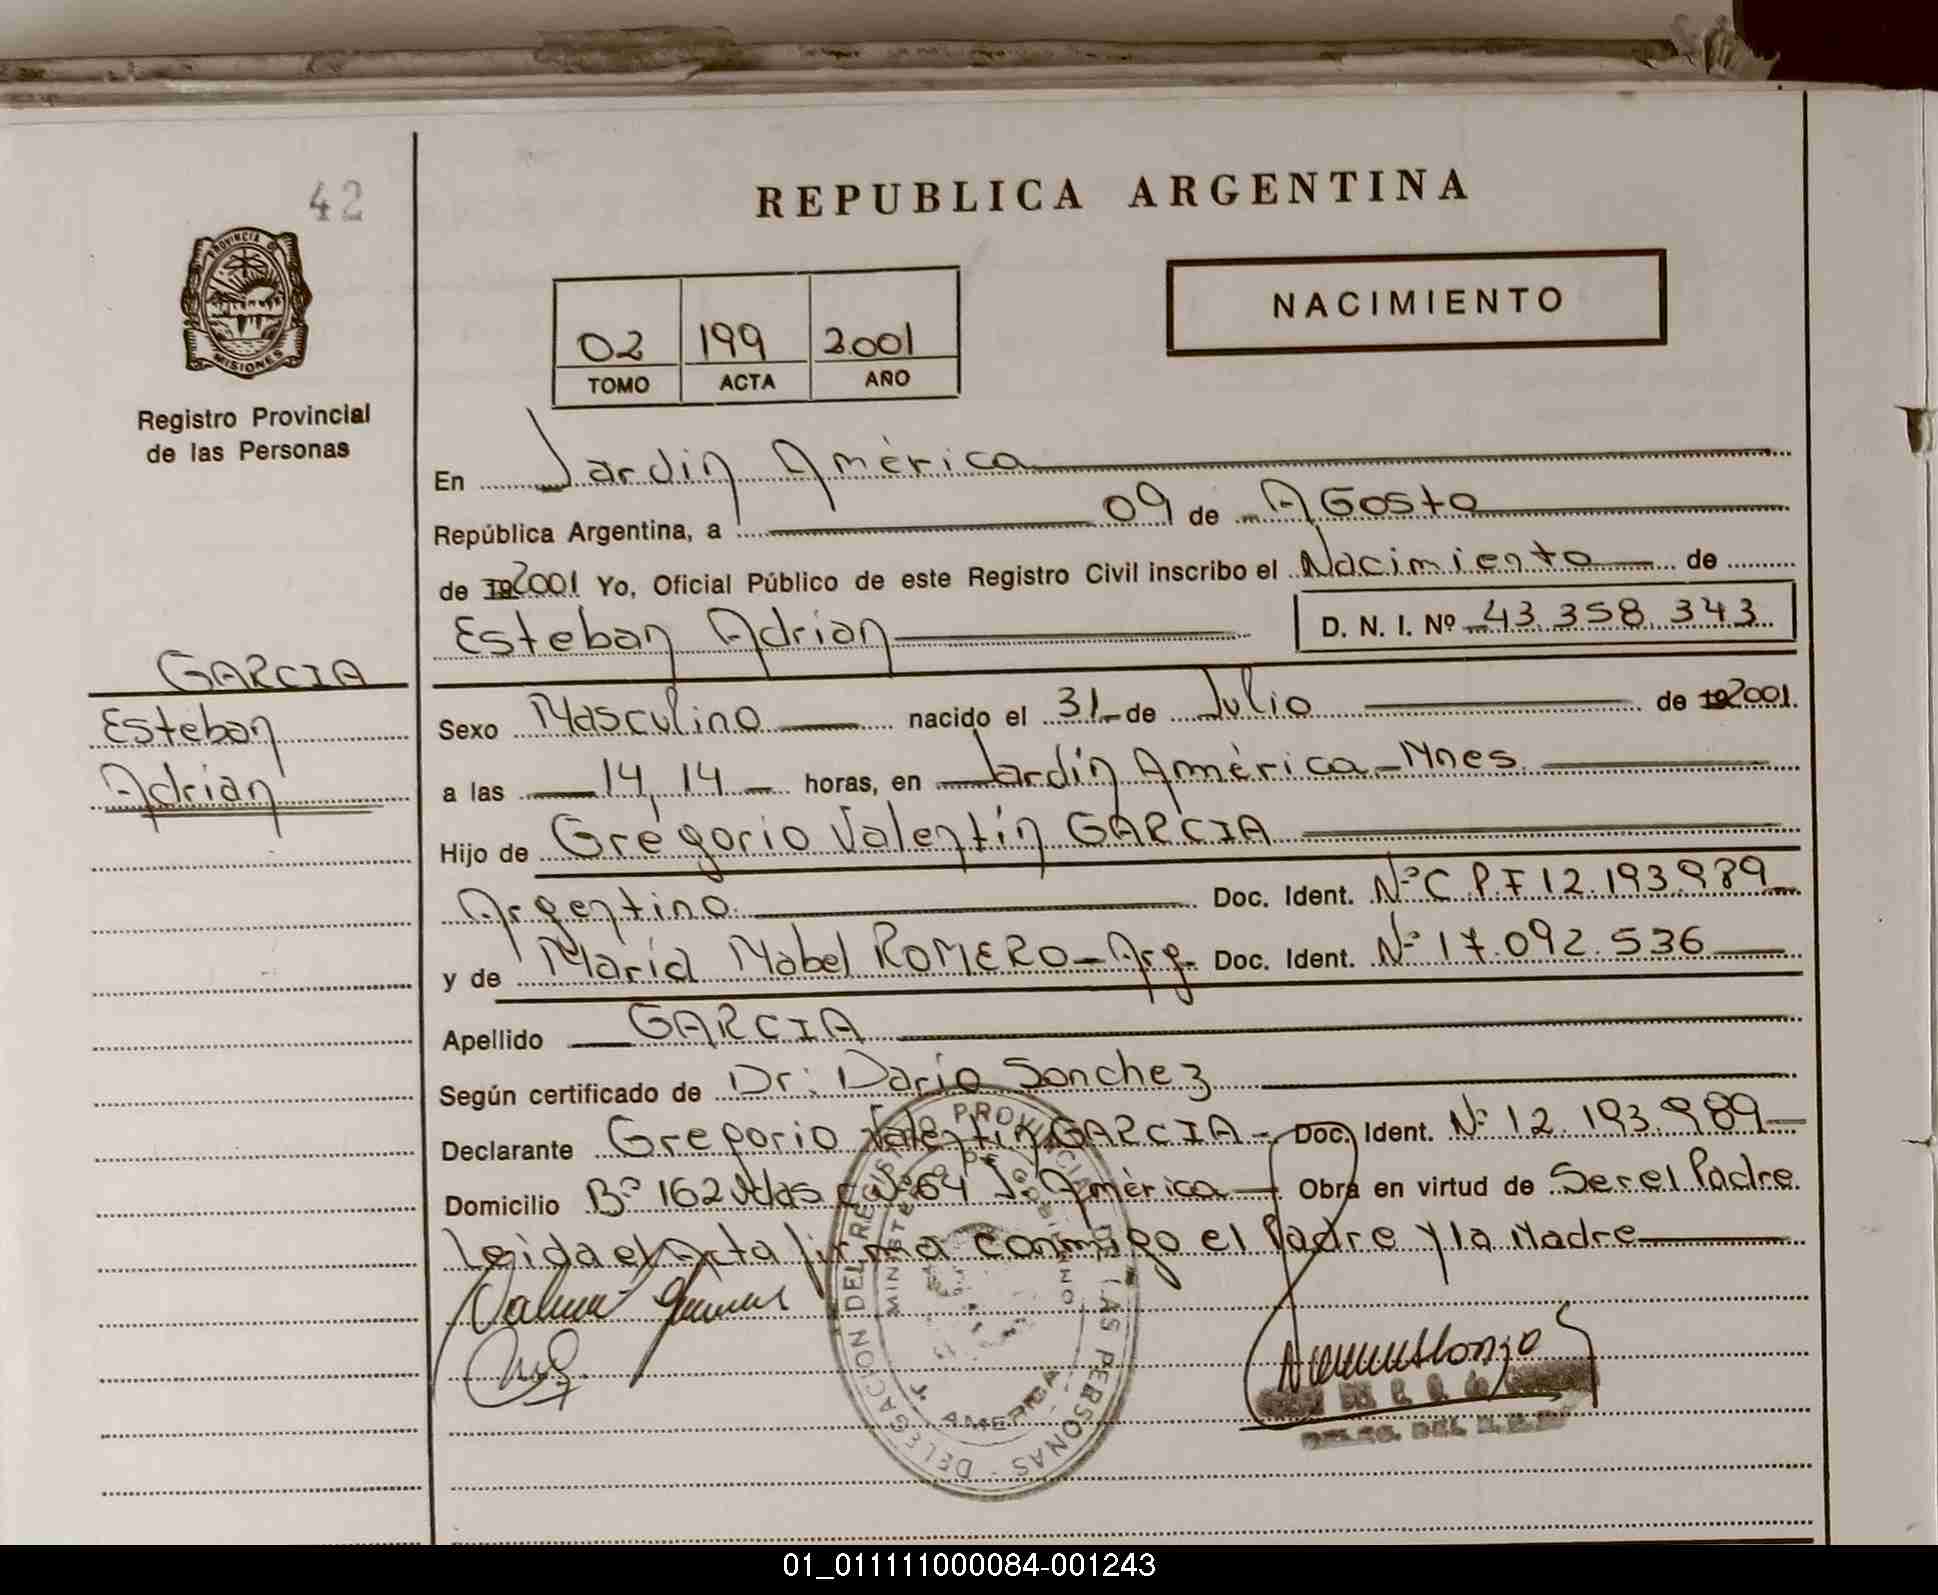 42
PROVINCIA DE
MISIONES
Registro Provincial
de las Personas
REPUBLICA ARGENTINA
NACIMIENTO
02 199 2001
TOMO ACTA AÑO
En Jardín América
República Argentina, a 09 de AGosto
de 192001 Yo, Oficial Público de este Registro Civil inscribo el Nacimiento de
Esteban Adrian D. N. I. Nº 43.358.343
GARCIA
Esteban
Adrian
Sexo Masculino nacido el 31 de Julio de 192001.
a las 14,14 horas, en Jardín América - Mnes.
Hijo de Gregorio Valentín GARCIA
Argentino Doc. Ident. Nº C.P.F 12.193.989
y de María Mabel ROMERO - Arg. Doc. Ident. Nº 17.092.536
Apellido GARCIA
Según certificado de Dr: Darío Sanchez
Declarante Gregorio Valentín GARCIA - Doc. Ident. Nº 12.193.989
Domicilio Bº 162 Vdas c Nº 64 J. América - Obra en virtud de Ser el Padre.
Leida el Acta firma conmigo el Padre y la Madre
DELEGACION DEL REGISTRO PROVINCIAL DE LAS PERSONAS
MINISTERIO DE GOBIERNO
J. AMERICA
01_011111000084-001243